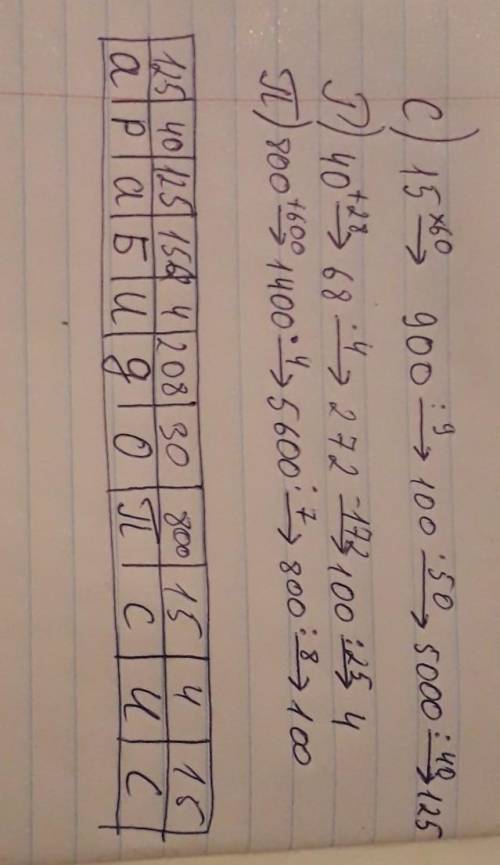 С) 15 ×60→ 900 :9→ 100 ·50→ 5000 :40→ 125
Р) 40 +28→ 68 ·4→ 272 -172→ 100 :25→ 4
П) 800 +600→ 1400 ·4→ 5600 :7→ 800 :8→ 100
125 40 125 158 4 208 30 800 15 4 15
а р а Б и д о П с и с